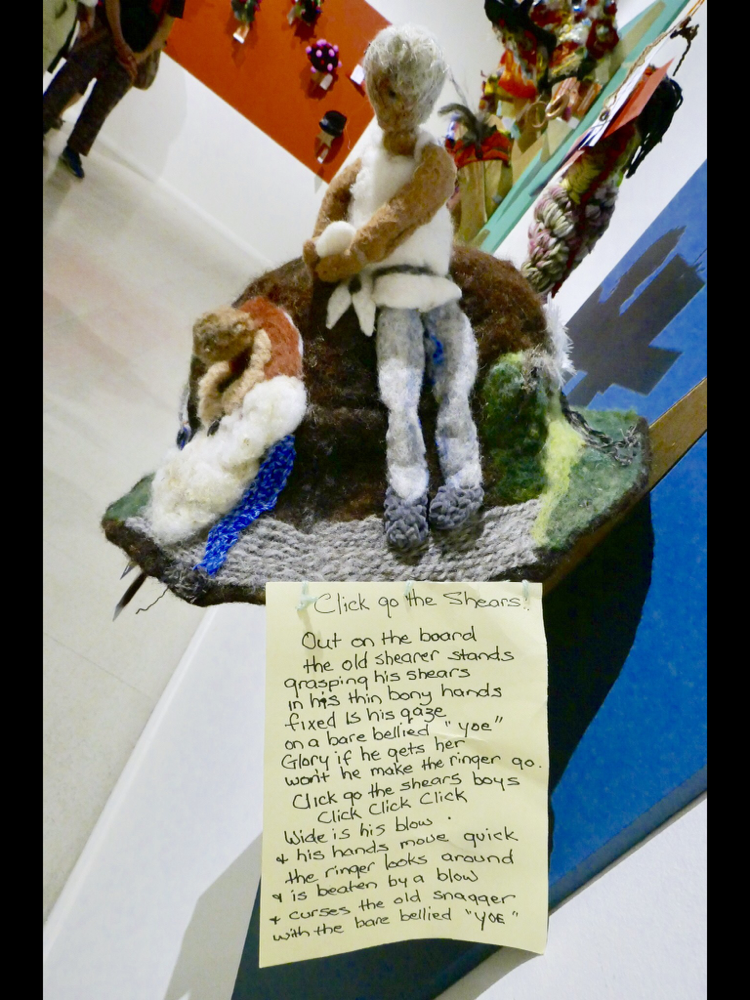 Click go the Shears!.
Out on the board
the old shearer stands
grasping his shears
in his thin bony hands
fixed is his gaze
on a bare bellied "yoe"
Glory if he gets her
won't he make the ringer go.
Click go the shears boys
Click Click Click
Wide is his blow.
& his hands move quick
the ringer looks around
& is beaten by a blow
& curses the old snagger
with the bare bellied "YOE"